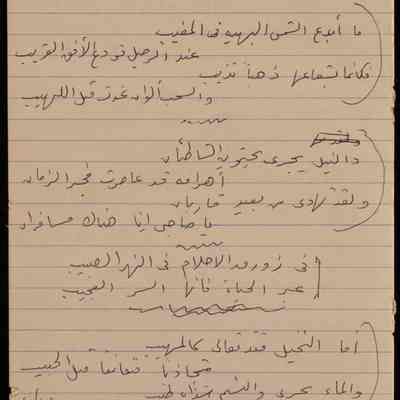 ما أبدع الشمس البهية فى المغيب
عند الرحيل تودع الأفق القريب
فكأنما شعاعها ذهبا تذيب
والسحب ألوان غدت قبل اللهيب
والنيل يجرى يحتويه الشاطئان
أهرامه قد عاصرت فجر الزمان
ولقد تهادى من بعيد قاربان
يا صاحبى إنا هناك مسافران
فى زورق الأحلام فى النهر الحبيب
عبر الحياة فإنها السر العجيب
أما النخيل فقد تعالى كالمهيب
متجاذبا متعانقا مثل الحبيب
والماء يجرى والنسيم